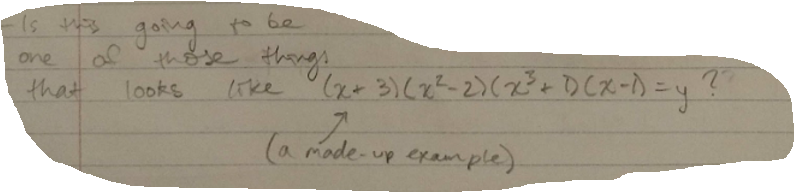 - Is this going to be
one of those things
that looks like (x+3)(x²-2)(x³+1)(x-1)=y ?
(a made-up example)